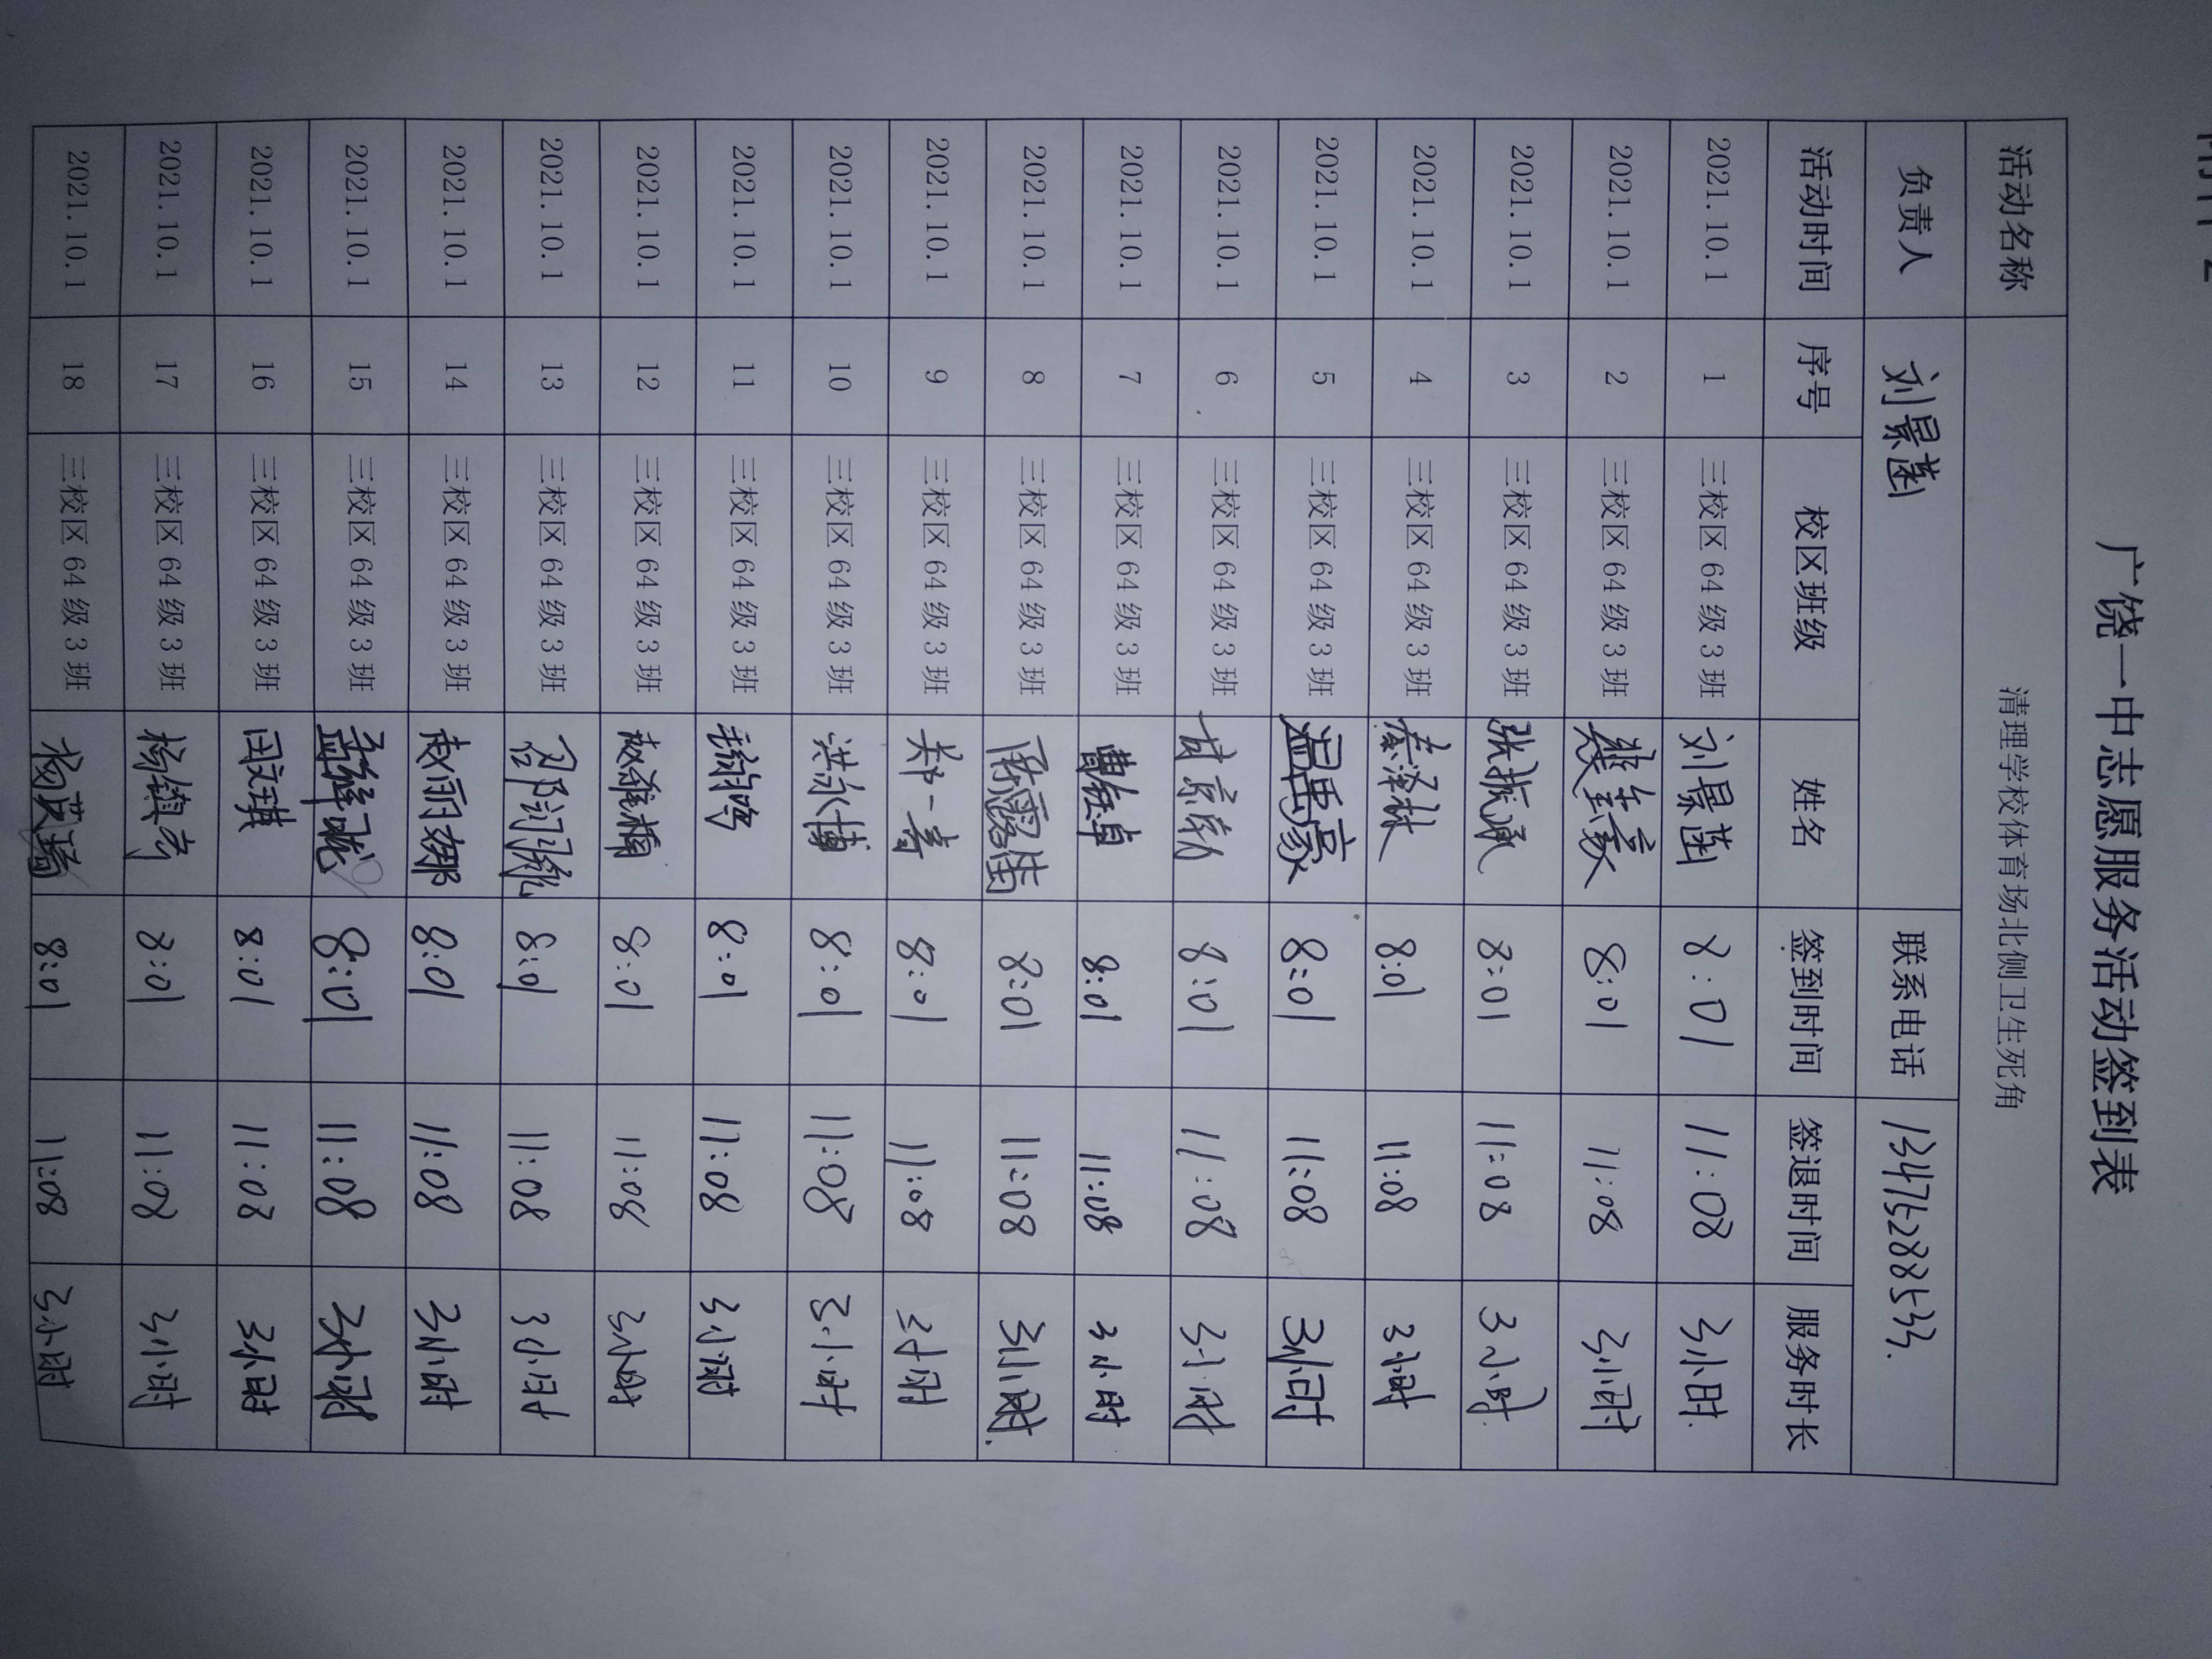 广饶一中志愿服务活动签到表
活动名称 清理学校体育场北侧卫生死角
负责人 刘景菡 联系电话 13475288533.
活动时间 序号 校区班级 姓名 签到时间 签退时间 服务时长
2021.10.1 1 三校区64级3班 刘景菡 8:01 11:08 3小时.
2021.10.1 2 三校区64级3班 8:01 11:08 3小时
2021.10.1 3 三校区64级3班 张振通 8:01 11:08 3小时.
2021.10.1 4 三校区64级3班 8:01 11:08 3小时
2021.10.1 5 三校区64级3班 温禹豪 8:01 11:08 3小时
2021.10.1 6 三校区64级3班 8:01 11:08 3小时
2021.10.1 7 三校区64级3班 曹钰卓 8:01 11:08 3小时
2021.10.1 8 三校区64级3班 8:01 11:08 3小时.
2021.10.1 9 三校区64级3班 8:01 11:08 3小时
2021.10.1 10 三校区64级3班 8:01 11:08 3小时
2021.10.1 11 三校区64级3班 8:01 11:08 3小时
2021.10.1 12 三校区64级3班 赵雅楠 8:01 11:08 3小时
2021.10.1 13 三校区64级3班 8:01 11:08 3小时
2021.10.1 14 三校区64级3班 赵丽娜 8:01 11:08 3小时
2021.10.1 15 三校区64级3班 8:01 11:08 3小时
2021.10.1 16 三校区64级3班 田文琪 8:01 11:08 3小时
2021.10.1 17 三校区64级3班 8:01 11:08 3小时
2021.10.1 18 三校区64级3班 8:01 11:08 3小时